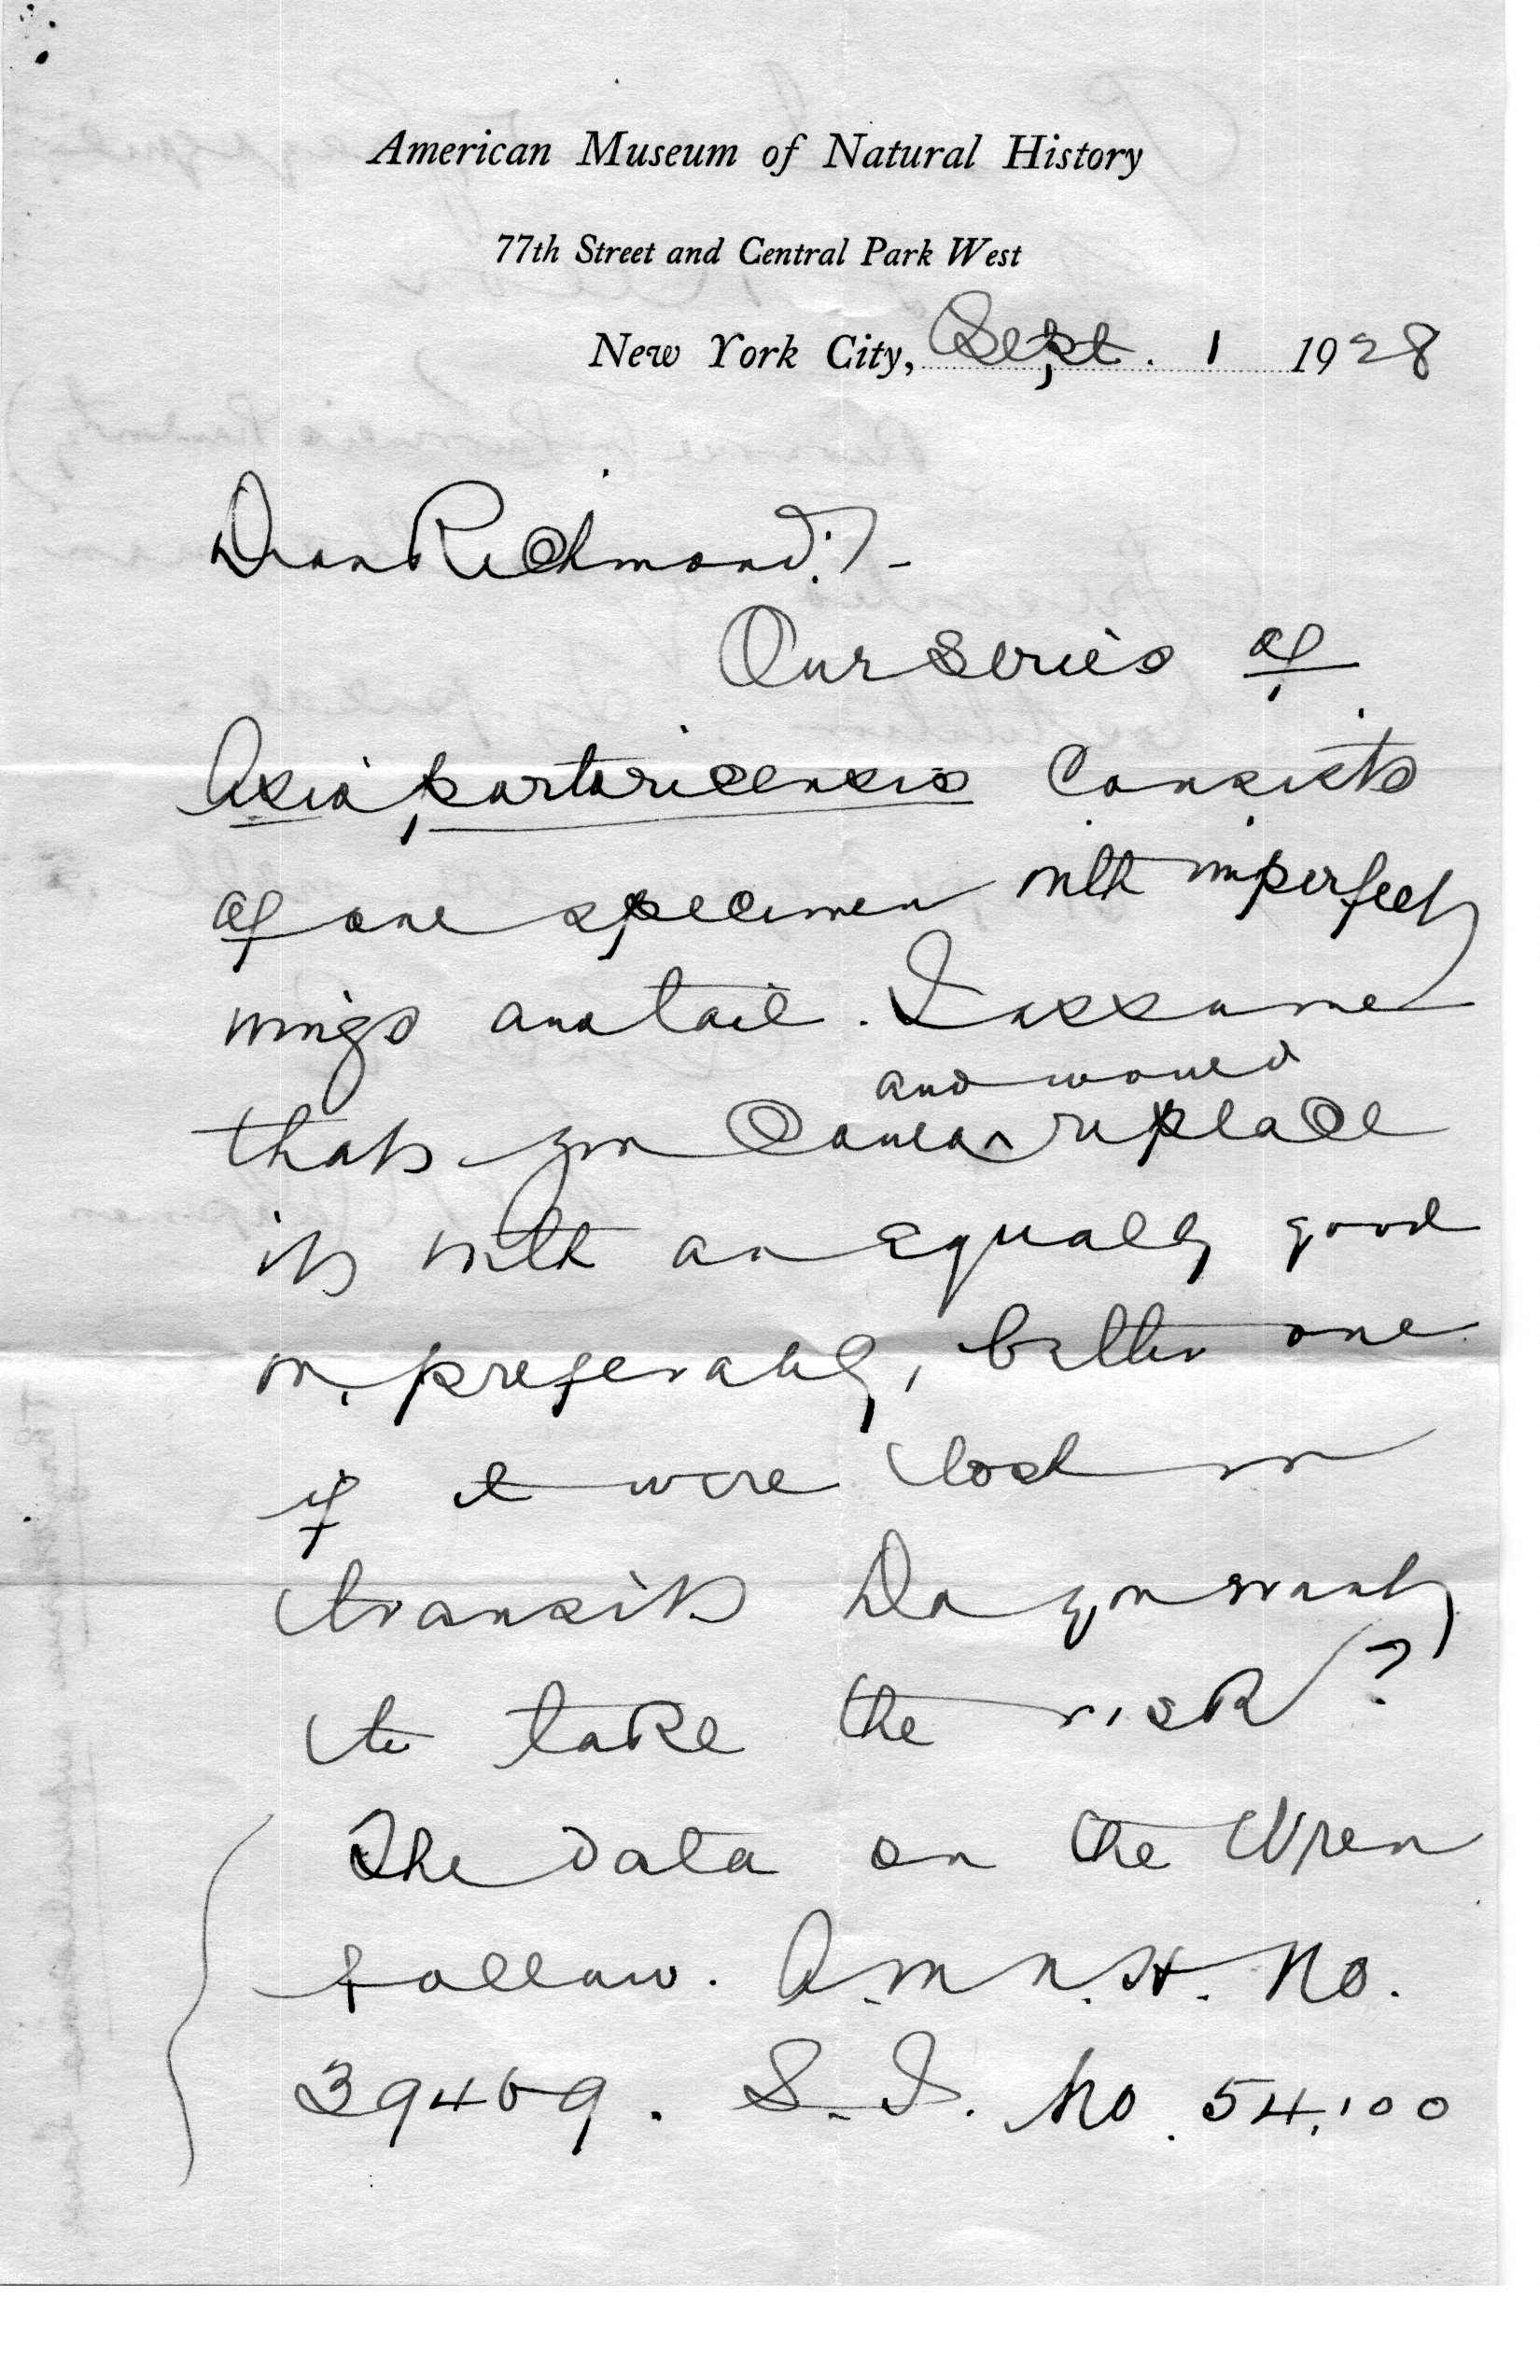 American Museum of Natural History
77th Street and Central Park West
New York City, Sept. 1 1928
Dear Richmond:-
Our series of
Asio portoricensis consists
of one specimen with imperfect
wings and tail. I assume
and would
that you could ^ replace
it with an equally good
or, preferably, better one
if it were lost in
transit Do you want
to take the risk?
The data on the Wren
follow. A.M.N.H. No.
39469. S.I. No. 54,100